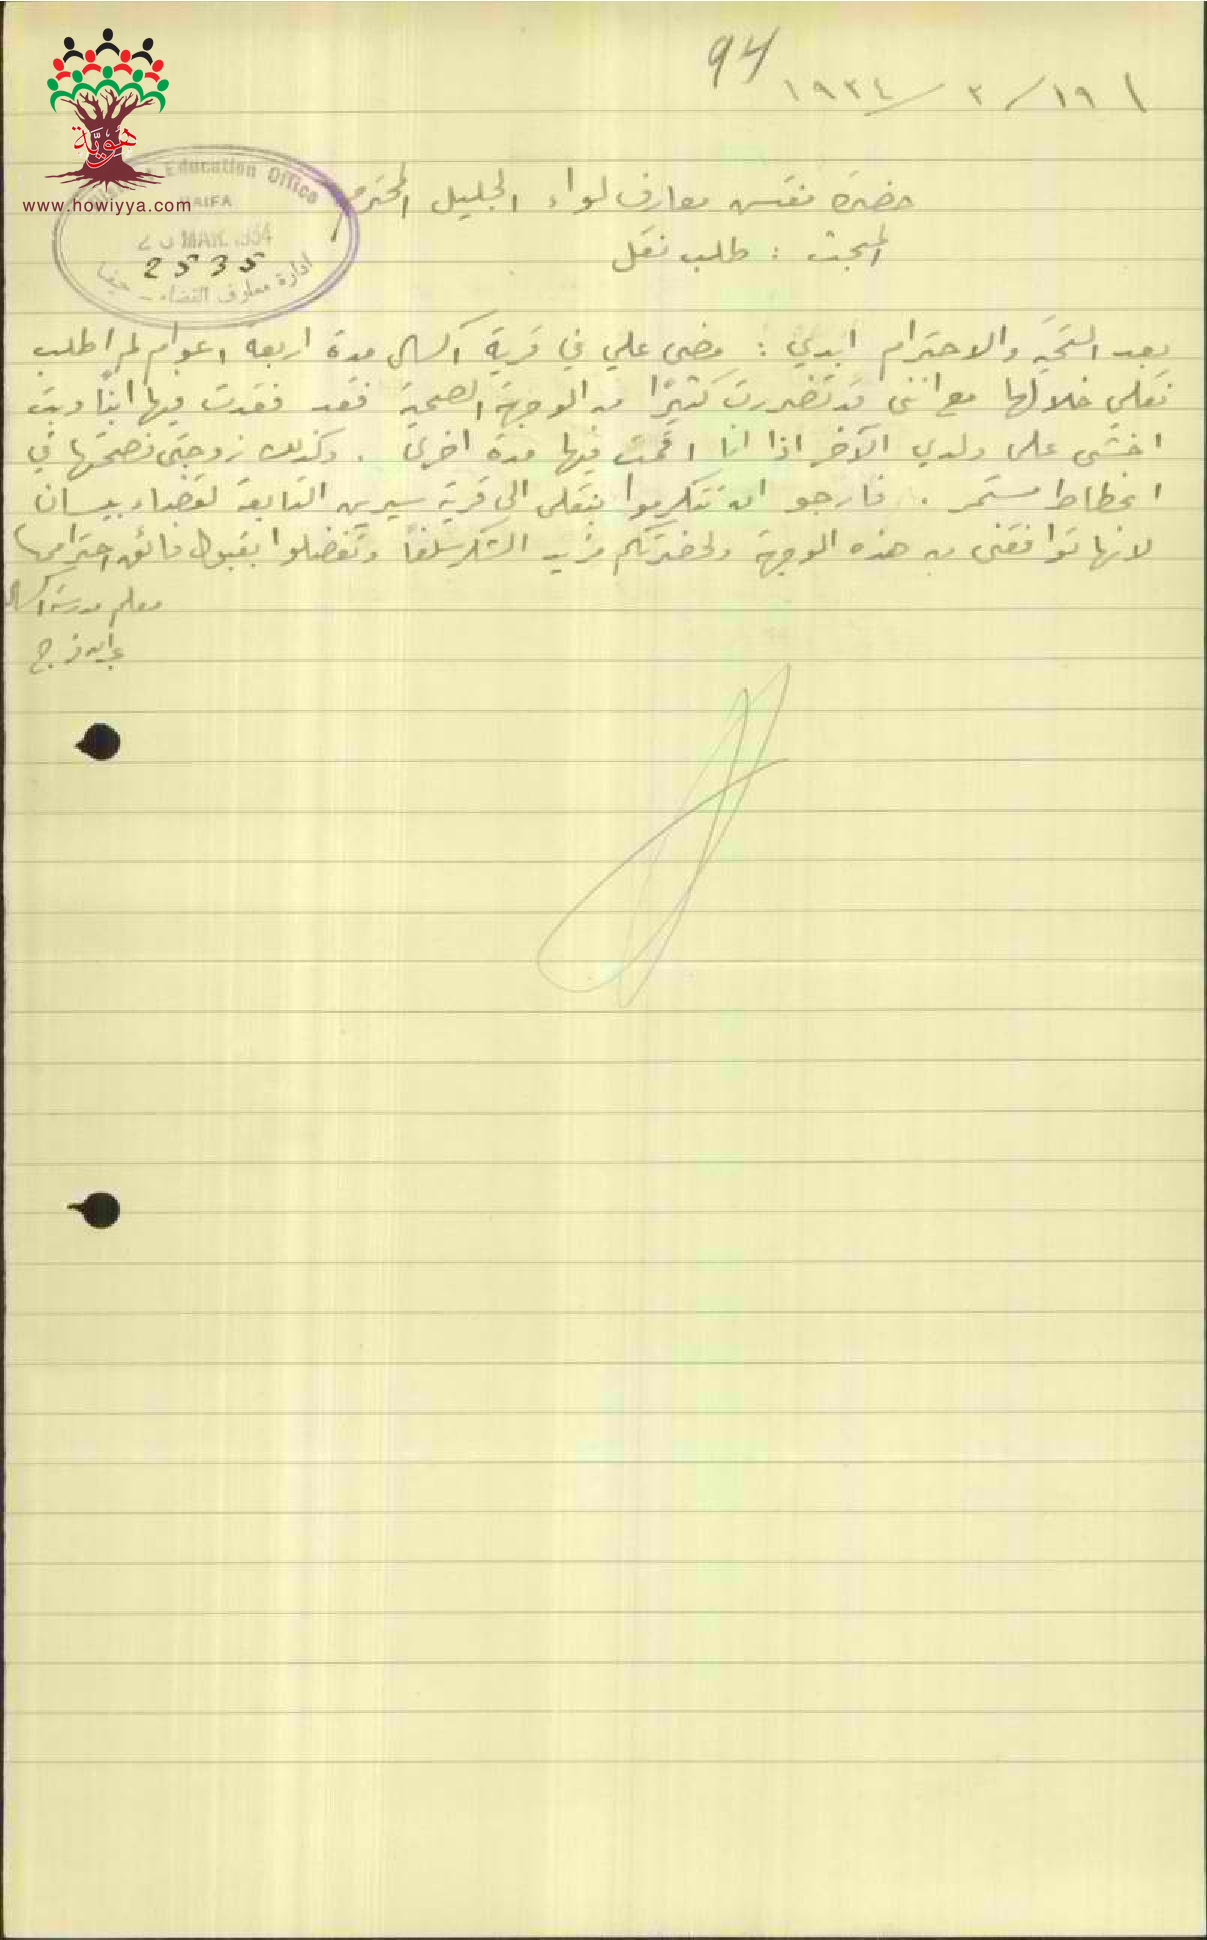 94
١٩ / ٣ / ١٩٣٤
هَوِيَّة
www.howiyya.com
Education Office
HAIFA
20 MAR. 1934
2535
ادارة معارف القضاء - حيفا
حضرة مفتش معارف لواء الجليل المحترم
المبحث : طلب نقل
بعد التحية والاحترام ابدي : مضى علي في قرية اكسال مدة اربعة اعوام لم اطلب
نقلي خلالها مع انني قد تضررت كثيرًا من الوجهة الصحية فقد فقدت فيها ابنًا وبت
اخشى على ولدي الآخر اذا انا اقمت فيها مدة اخرى . وكذلك زوجتي فصحتها في
انحطاط مستمر . فارجو ان تتكرموا بنقلي الى قرية سيرين التابعة لقضاء بيسان
لانها توافقني من هذه الوجهة ولحضرتكم مزيد الشكر سلفًا وتفضلوا بقبول فائق احترامي
معلم مدرسة اكسال
فرج